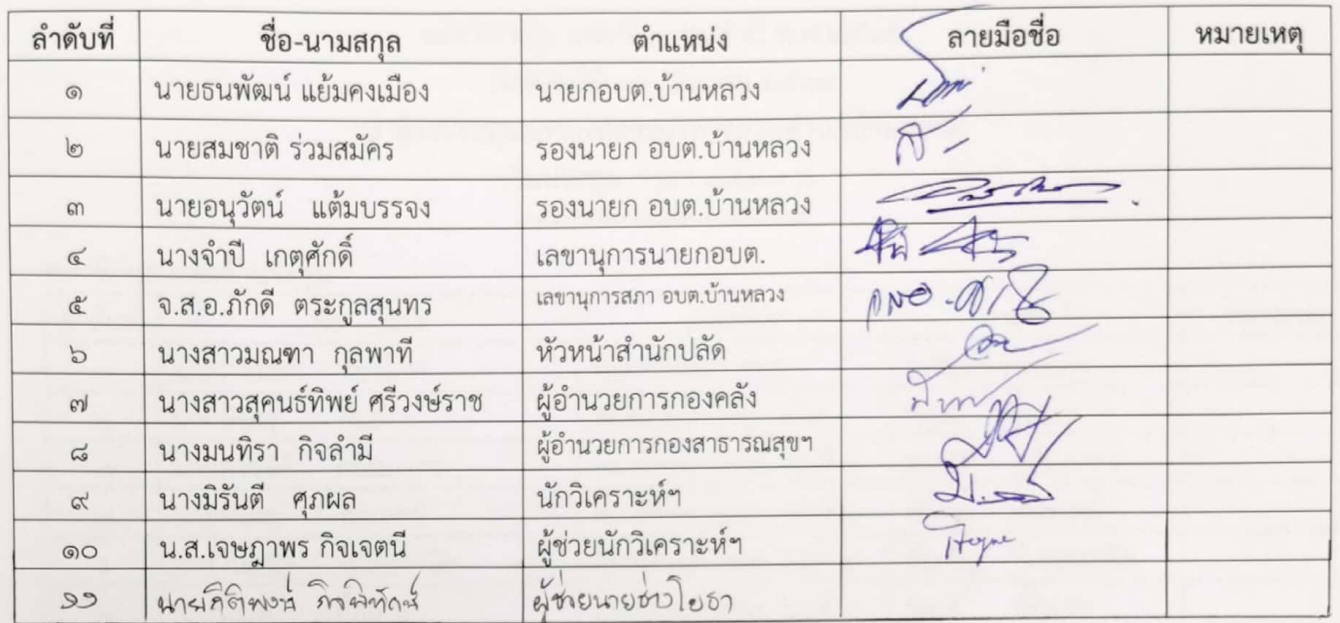 ลำดับที่ ชื่อ-นามสกุล ตำแหน่ง ลายมือชื่อ หมายเหตุ
๑ นายธนพัฒน์ แย้มคงเมือง นายกอบต.บ้านหลวง
๒ นายสมชาติ ร่วมสมัคร รองนายก อบต.บ้านหลวง
๓ นายอนุวัตน์ แต้มบรรจง รองนายก อบต.บ้านหลวง
๔ นางจำปี เกตุศักดิ์ เลขานุการนายกอบต.
๕ จ.ส.อ.ภักดี ตระกูลสุนทร เลขานุการสภา อบต.บ้านหลวง
๖ นางสาวมณฑา กุลพาที หัวหน้าสำนักปลัด
๗ นางสาวสุคนธ์ทิพย์ ศรีวงษ์ราช ผู้อำนวยการกองคลัง
๘ นางมนทิรา กิจลำมี ผู้อำนวยการกองสาธารณสุขฯ
๙ นางมิรันตี ศุภผล นักวิเคราะห์ฯ
๑๐ น.ส.เจษฎาพร กิจเจตนี ผู้ช่วยนักวิเคราะห์ฯ
๑๑ นายกิติพงษ์ กิจพิทักษ์ ผู้ช่วยนายช่างโยธา